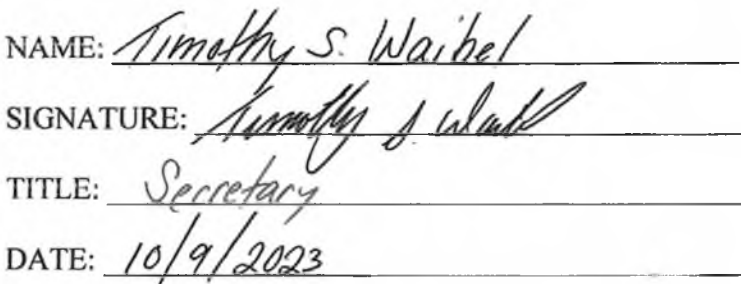 NAME: Timothy S. Waibel
SIGNATURE: Timothy S. Waibel
TITLE: Secretary
DATE: 10/9/2023